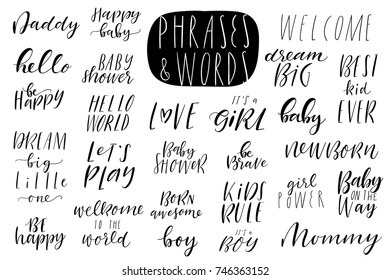 Daddy
Happy
baby
PHRASES
& WORDS
WELCOME
hello
BABY
shower
dream
BIG
BEST
kid
EVER
be
Happy
HELLO
WORLD
LOVE
IT'S a
GIRL
baby
DREAM
big
little
one
LET'S
PLAY
Baby
SHOWER
be
Brave
NEWBORN
BORN
awesome
KIDS
RULE
girl
POWER
Baby
ON the
WAY
BE
happy
welcome
TO the
world
boy
IT'S a
BOY
Mommy
shutterstock
IMAGE ID: 746363152
www.shutterstock.com